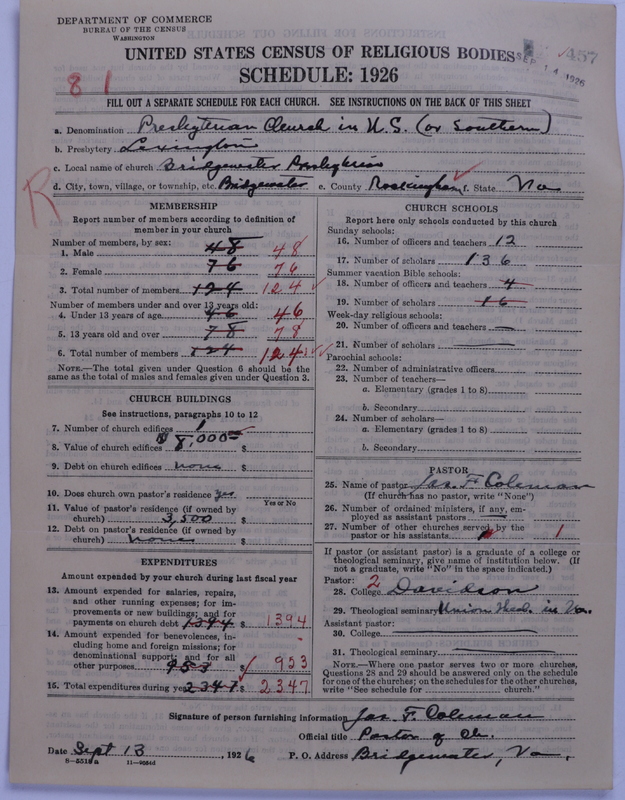 DEPARTMENT OF COMMERCE
BUREAU OF THE CENSUS
WASHINGTON
UNITED STATES CENSUS OF RELIGIOUS BODIES
SCHEDULE: 1926
SEP 14 1926
457
8 1
FILL OUT A SEPARATE SCHEDULE FOR EACH CHURCH. SEE INSTRUCTIONS ON THE BACK OF THIS SHEET
a. Denomination Presbyterian Church in U.S. (or Southern)
b. Presbytery Lexington
c. Local name of church Bridgewater Presbyterian
d. City, town, village, or township, etc. Bridgewater e. County Rockingham f. State Va
R
MEMBERSHIP
Report number of members according to definition of
member in your church
Number of members, by sex:
1. Male 48 48
2. Female 76 76
3. Total number of members 124 124
Number of members under and over 13 years old:
4. Under 13 years of age 46 46
5. 13 years old and over 78 78
6. Total number of members 124 124
NOTE.—The total given under Question 6 should be the
same as the total of males and females given under Question 3.
CHURCH BUILDINGS
See instructions, paragraphs 10 to 12
7. Number of church edifices 1
8. Value of church edifices $8,000= $
9. Debt on church edifices none $
10. Does church own pastor's residence yes
Yes or No
11. Value of pastor's residence (if owned by
church) 3,500 $
12. Debt on pastor's residence (if owned by
church) none $
EXPENDITURES
Amount expended by your church during last fiscal year
13. Amount expended for salaries, repairs,
and other running expenses; for im-
provements or new buildings; and for
payments on church debt 1394 $ 1394
14. Amount expended for benevolences, in-
cluding home and foreign missions; for
denominational support; and for all
other purposes 953 $ 953
15. Total expenditures during year 2347 $ 2347
CHURCH SCHOOLS
Report here only schools conducted by this church
Sunday schools:
16. Number of officers and teachers 12
17. Number of scholars 136
Summer vacation Bible schools:
18. Number of officers and teachers 4
19. Number of scholars 16
Week-day religious schools:
20. Number of officers and teachers
21. Number of scholars
Parochial schools:
22. Number of administrative officers
23. Number of teachers—
a. Elementary (grades 1 to 8)
b. Secondary
24. Number of scholars—
a. Elementary (grades 1 to 8)
b. Secondary
PASTOR
25. Name of pastor Jas. F. Coleman
(If church has no pastor, write "None")
26. Number of ordained ministers, if any, em-
ployed as assistant pastors
27. Number of other churches served by the
pastor or his assistants 1
If pastor (or assistant pastor) is a graduate of a college or
theological seminary, give name of institution below. (If
not a graduate, write "No" in the space indicated.)
Pastor: 2
28. College Davidson
29. Theological seminary Union Theol. in Va.
Assistant pastor:
30. College
31. Theological seminary
NOTE.—Where one pastor serves two or more churches,
Questions 28 and 29 should be answered only on the schedule
for one of the churches; on the schedules for the other churches,
write "See schedule for church."
Signature of person furnishing information Jas. F. Coleman
Official title Pastor of Ch.
Date Sept 13, 1926 P. O. Address Bridgewater, Va.